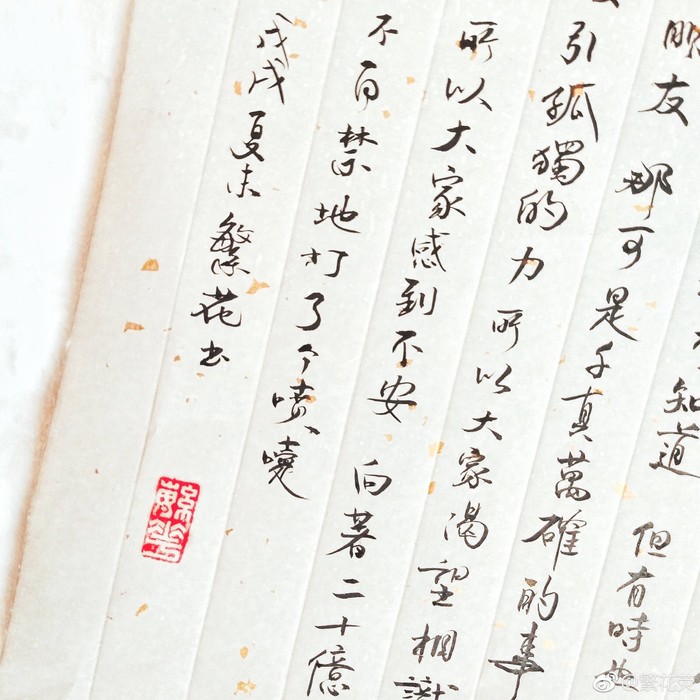 知道 但有時
朋友 那可是千真萬確的事
引孤獨的力 所以大家渴望相識
所以大家感到不安 向著二十億
不自禁地打了个噴嚏
戊戌夏末繁花书
繁花